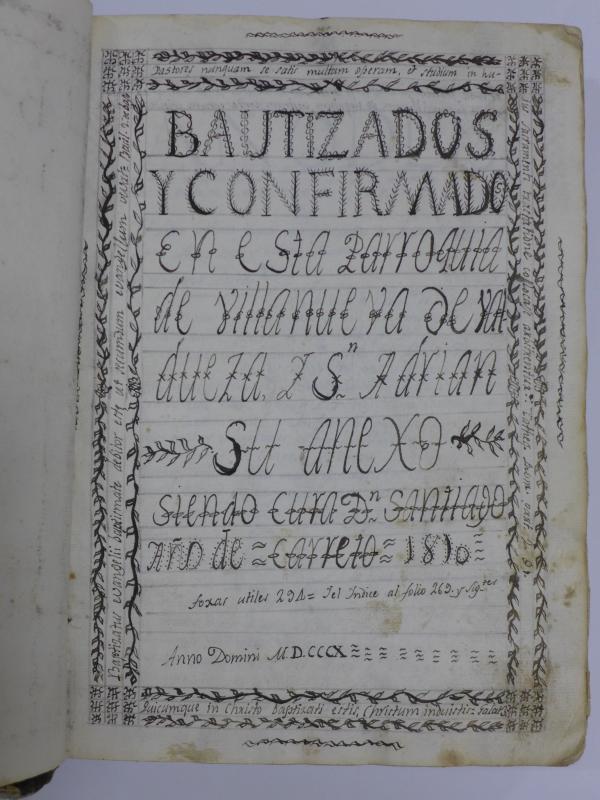 Pastores nunquam se satis multam operam, et studium in hu-
BAUTIZADOS
Y CONFIRMADOS
En esta Parroquia
de Villanueva de Val
dueza, y Sn Adrian
Su anexo
Siendo Cura Dn Santiago
AÑO de = Carreto = 1810 =
foxas utiles 294 = y el Indice al folio 269 y sigtes
Anno Domini M.D.CCCX
Quicumque in Christo Baptizati estis, Christum induistis
Baptizatus evangelii baptismate debitor est ut secundum evangelium